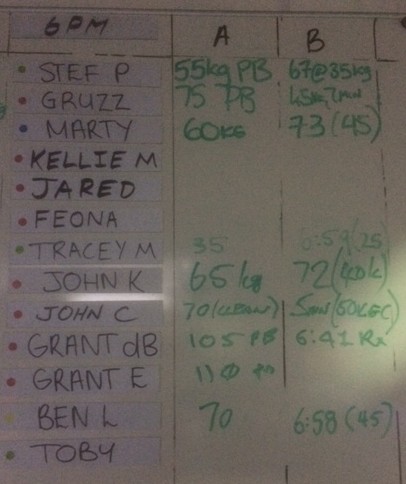 6PM A B
STEF P 55kg PB 67@35kg
GRUZZ 75 PB
MARTY 60KG 73 (45)
KELLIE M
JARED
FEONA
TRACEY M 35 6:59 (25
JOHN K 65 kg 72
JOHN C 70 (CLEAN)
GRANT dB 105 PB 6:41 Rx
GRANT E 110
BEN L 70 6:58 (45)
TOBY